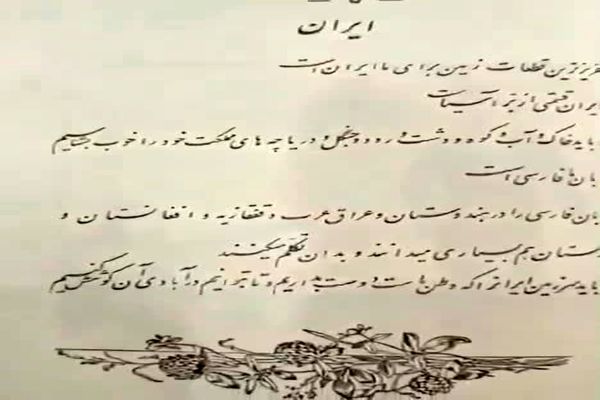 ایران
عزیزترین قطعات زمین برای ما ایران است
ایران قسمتی از بر آسیاست
باید خاک و آب و کوه و دشت و رود و جنگل و دریاچه های مملکت خود را خوب بشناسیم
زبان ما فارسی است
زبان فارسی را در هندوستان و عراق عرب و قفقازیه و افغانستان و
هم بسیاری میدانند و بدان تکلم میکنند
باید سرزمین ایران را که وطن ماست دوست بداریم و تا بتوانیم در آبادی آن کوشش کنیم